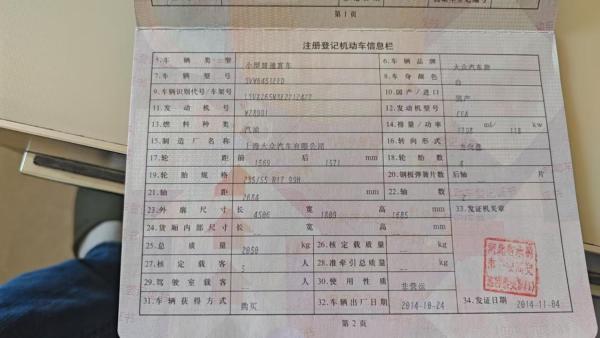 第1页
注册登记机动车信息栏
5.车辆类型 小型普通客车 6.车辆品牌 大众汽车牌
7.车辆型号 8.车身颜色 白
9.车辆识别代号/车架号 10.国产/进口 国产
11.发动机号 W28001 12.发动机型号 CEA
13.燃料种类 汽油 14.排量/功率 ml/ 118 kw
15.制造厂名称 上海大众汽车有限公司 16.转向形式 方向盘
17.轮距 前 1569 后 1571 mm 18.轮胎数 4
19.轮胎规格 235/55 R17 99H 20.钢板弹簧片数 后轴 片
21.轴距 2684 mm 22.轴数 2
23.外廓尺寸 长 4506 宽 1809 高 1685 mm 33.发证机关章
24.货厢内部尺寸 长 宽 高 mm
25.总质量 2050 kg 26.核定载质量 kg
27.核定载客 5 人 28.准牵引总质量 kg
29.驾驶室载客 人 30.使用性质 非营运
31.车辆获得方式 购买 32.车辆出厂日期 2014-10-24 34.发证日期 2014-11-04
第2页